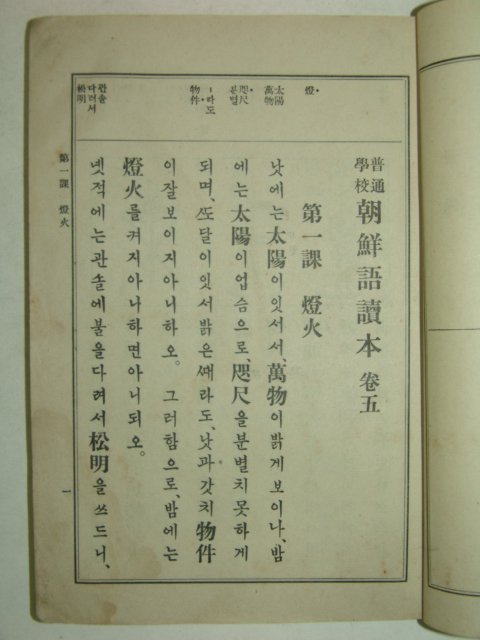 普通學校 朝鮮語讀本 卷五
第一課 燈火
낫에는太陽이잇서서、萬物이밝게보이나、밤
에는太陽이업슴으로、咫尺을分별치못하게
되며、ᄯᅩ달이잇서밝은ᄯᅢ라도、낫과갓치物件
이잘보이지아니하오。 그러함으로、밤에는
燈火를켜지아니하면아니되오。
녯적에는관솔에불을다려서松明을쓰드니、
燈
太陽
萬物
咫尺
분별
ㅡ라도
物件
관솔
다려서
松明
第一課 燈火
一